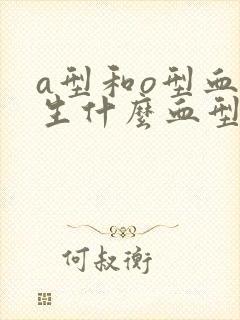 a型和o型血
生什麼血型
何叔衡